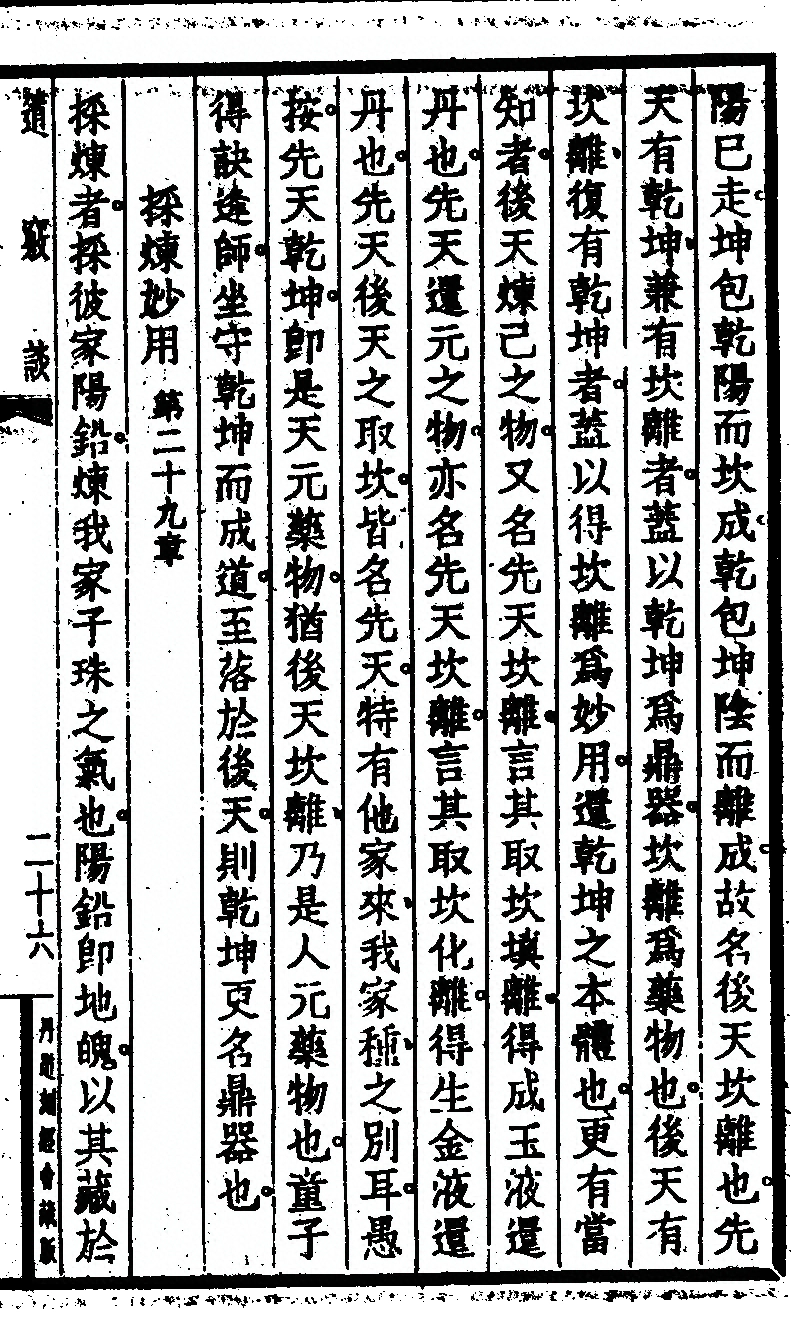 陽巳走坤包乾陽而坎成乾包坤陰而離成故名後天坎離也先
天有乾坤兼有坎離者蓋以乾坤爲鼎器坎離爲藥物也後天有
坎離復有乾坤者蓋以得坎離爲妙用還乾坤之本體也更有當
知者後天煉己之物又名先天坎離言其取坎塡離得成玉液還
丹也先天還元之物亦名先天坎離言其取坎化離得生金液還
丹也先天後天之取坎皆名先天特有他家來我家種之別耳愚
按先天乾坤卽是天元藥物猶後天坎離乃是人元藥物也童子
得訣逢師坐守乾坤而成道至落於後天則乾坤更名鼎器也
採煉妙用 第二十九章
採煉者採彼家陽鉛煉我家子珠之氣也陽鉛卽地魄以其藏於
道竅談
二十六
丹道刻經會藏版